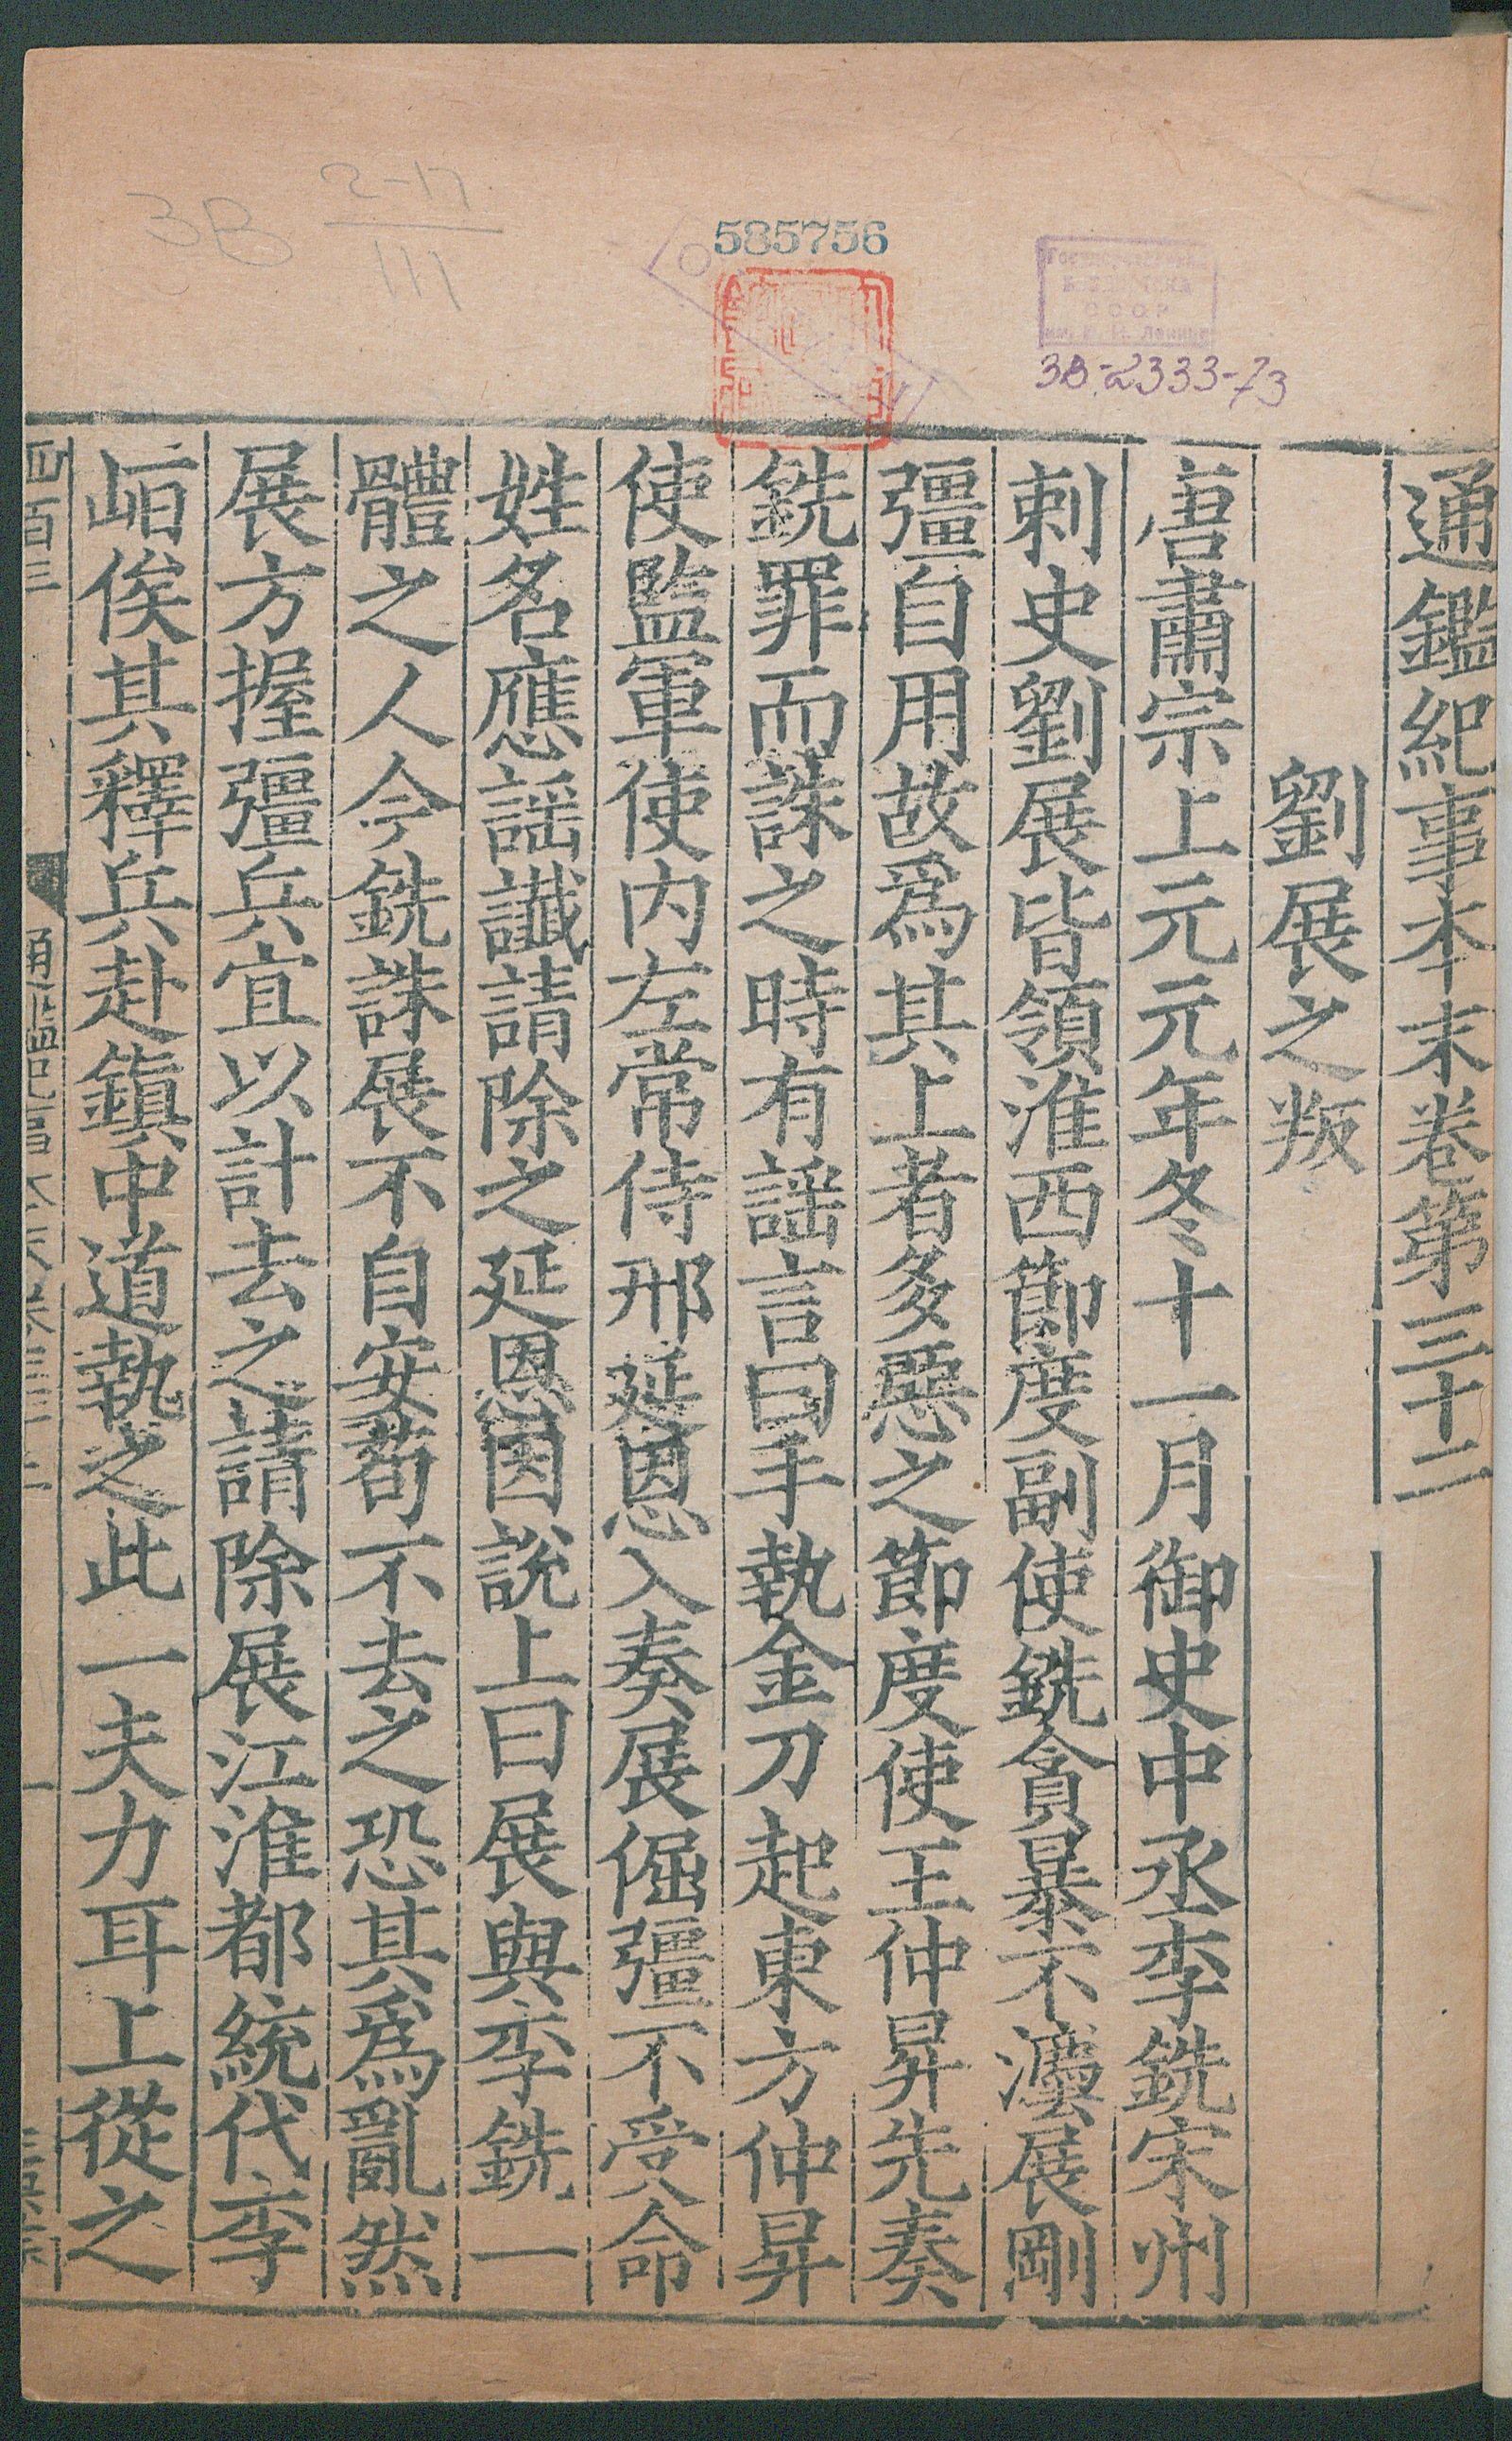 585756
3В 2-17
111
Государственная
БИБЛИОТЕКА
СССР
им. В. И. Ленина
3В-2333-73
通鑑紀事本末卷第三十二
劉展之叛
唐肅宗上元元年冬十一月御史中丞李銑宋州
刺史劉展皆領淮西節度副使銑貪暴不灋展剛
彊自用故爲其上者多惡之節度使王仲昇先奏
銑罪而誅之時有謡言曰手執金刀起東方仲昇
使監軍使内左常侍邢延恩入奏展倔彊不受命
姓名應謡讖請除之延恩因說上曰展與李銑一
體之人今銑誅展不自安苟不去之恐其爲亂然
展方握彊兵宜以計去之請除展江淮都統代李
峘俟其釋兵赴鎭中道執之此一夫力耳上從之
四百三
通鑑紀事本末卷三十二
一